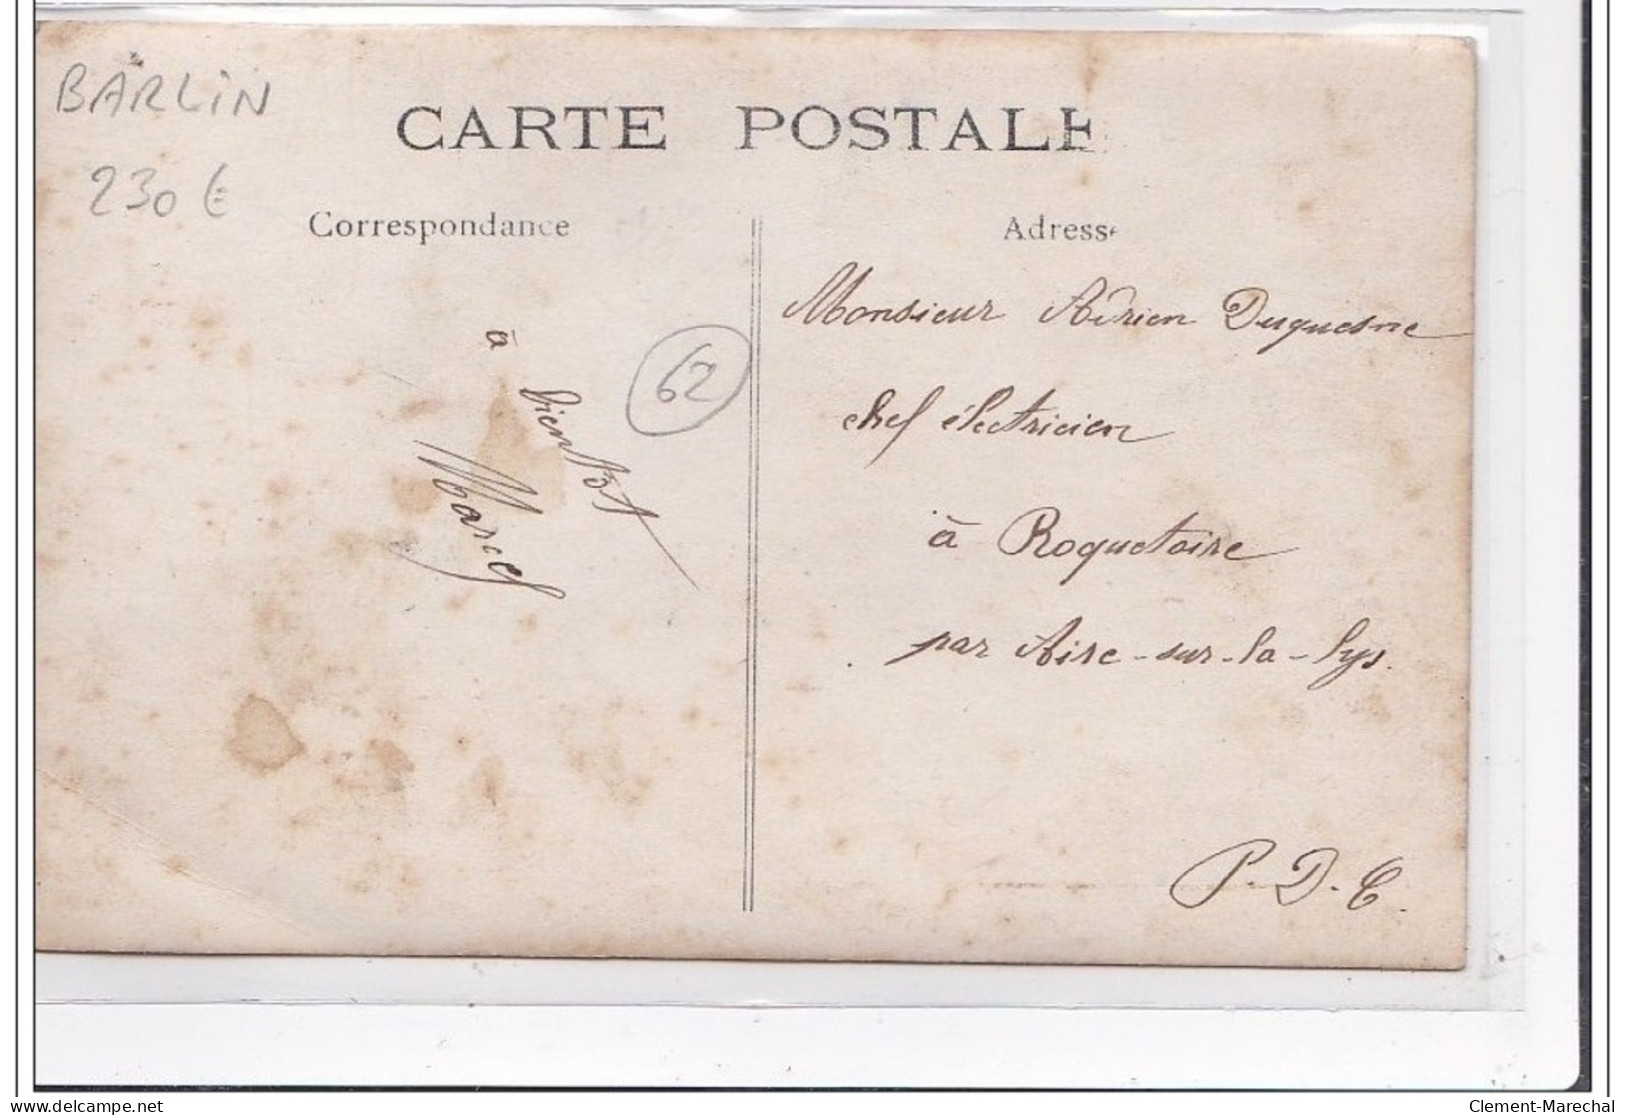 BARLIN
230 €
CARTE POSTALE
Correspondance
Adresse
à
bientot
Marcel
62
Monsieur Adrien Duquesne
chef électricien
à Roquetoire
par Aire-sur-la-Lys.
P.D.C.
delcampe.net
Clement-Marechal